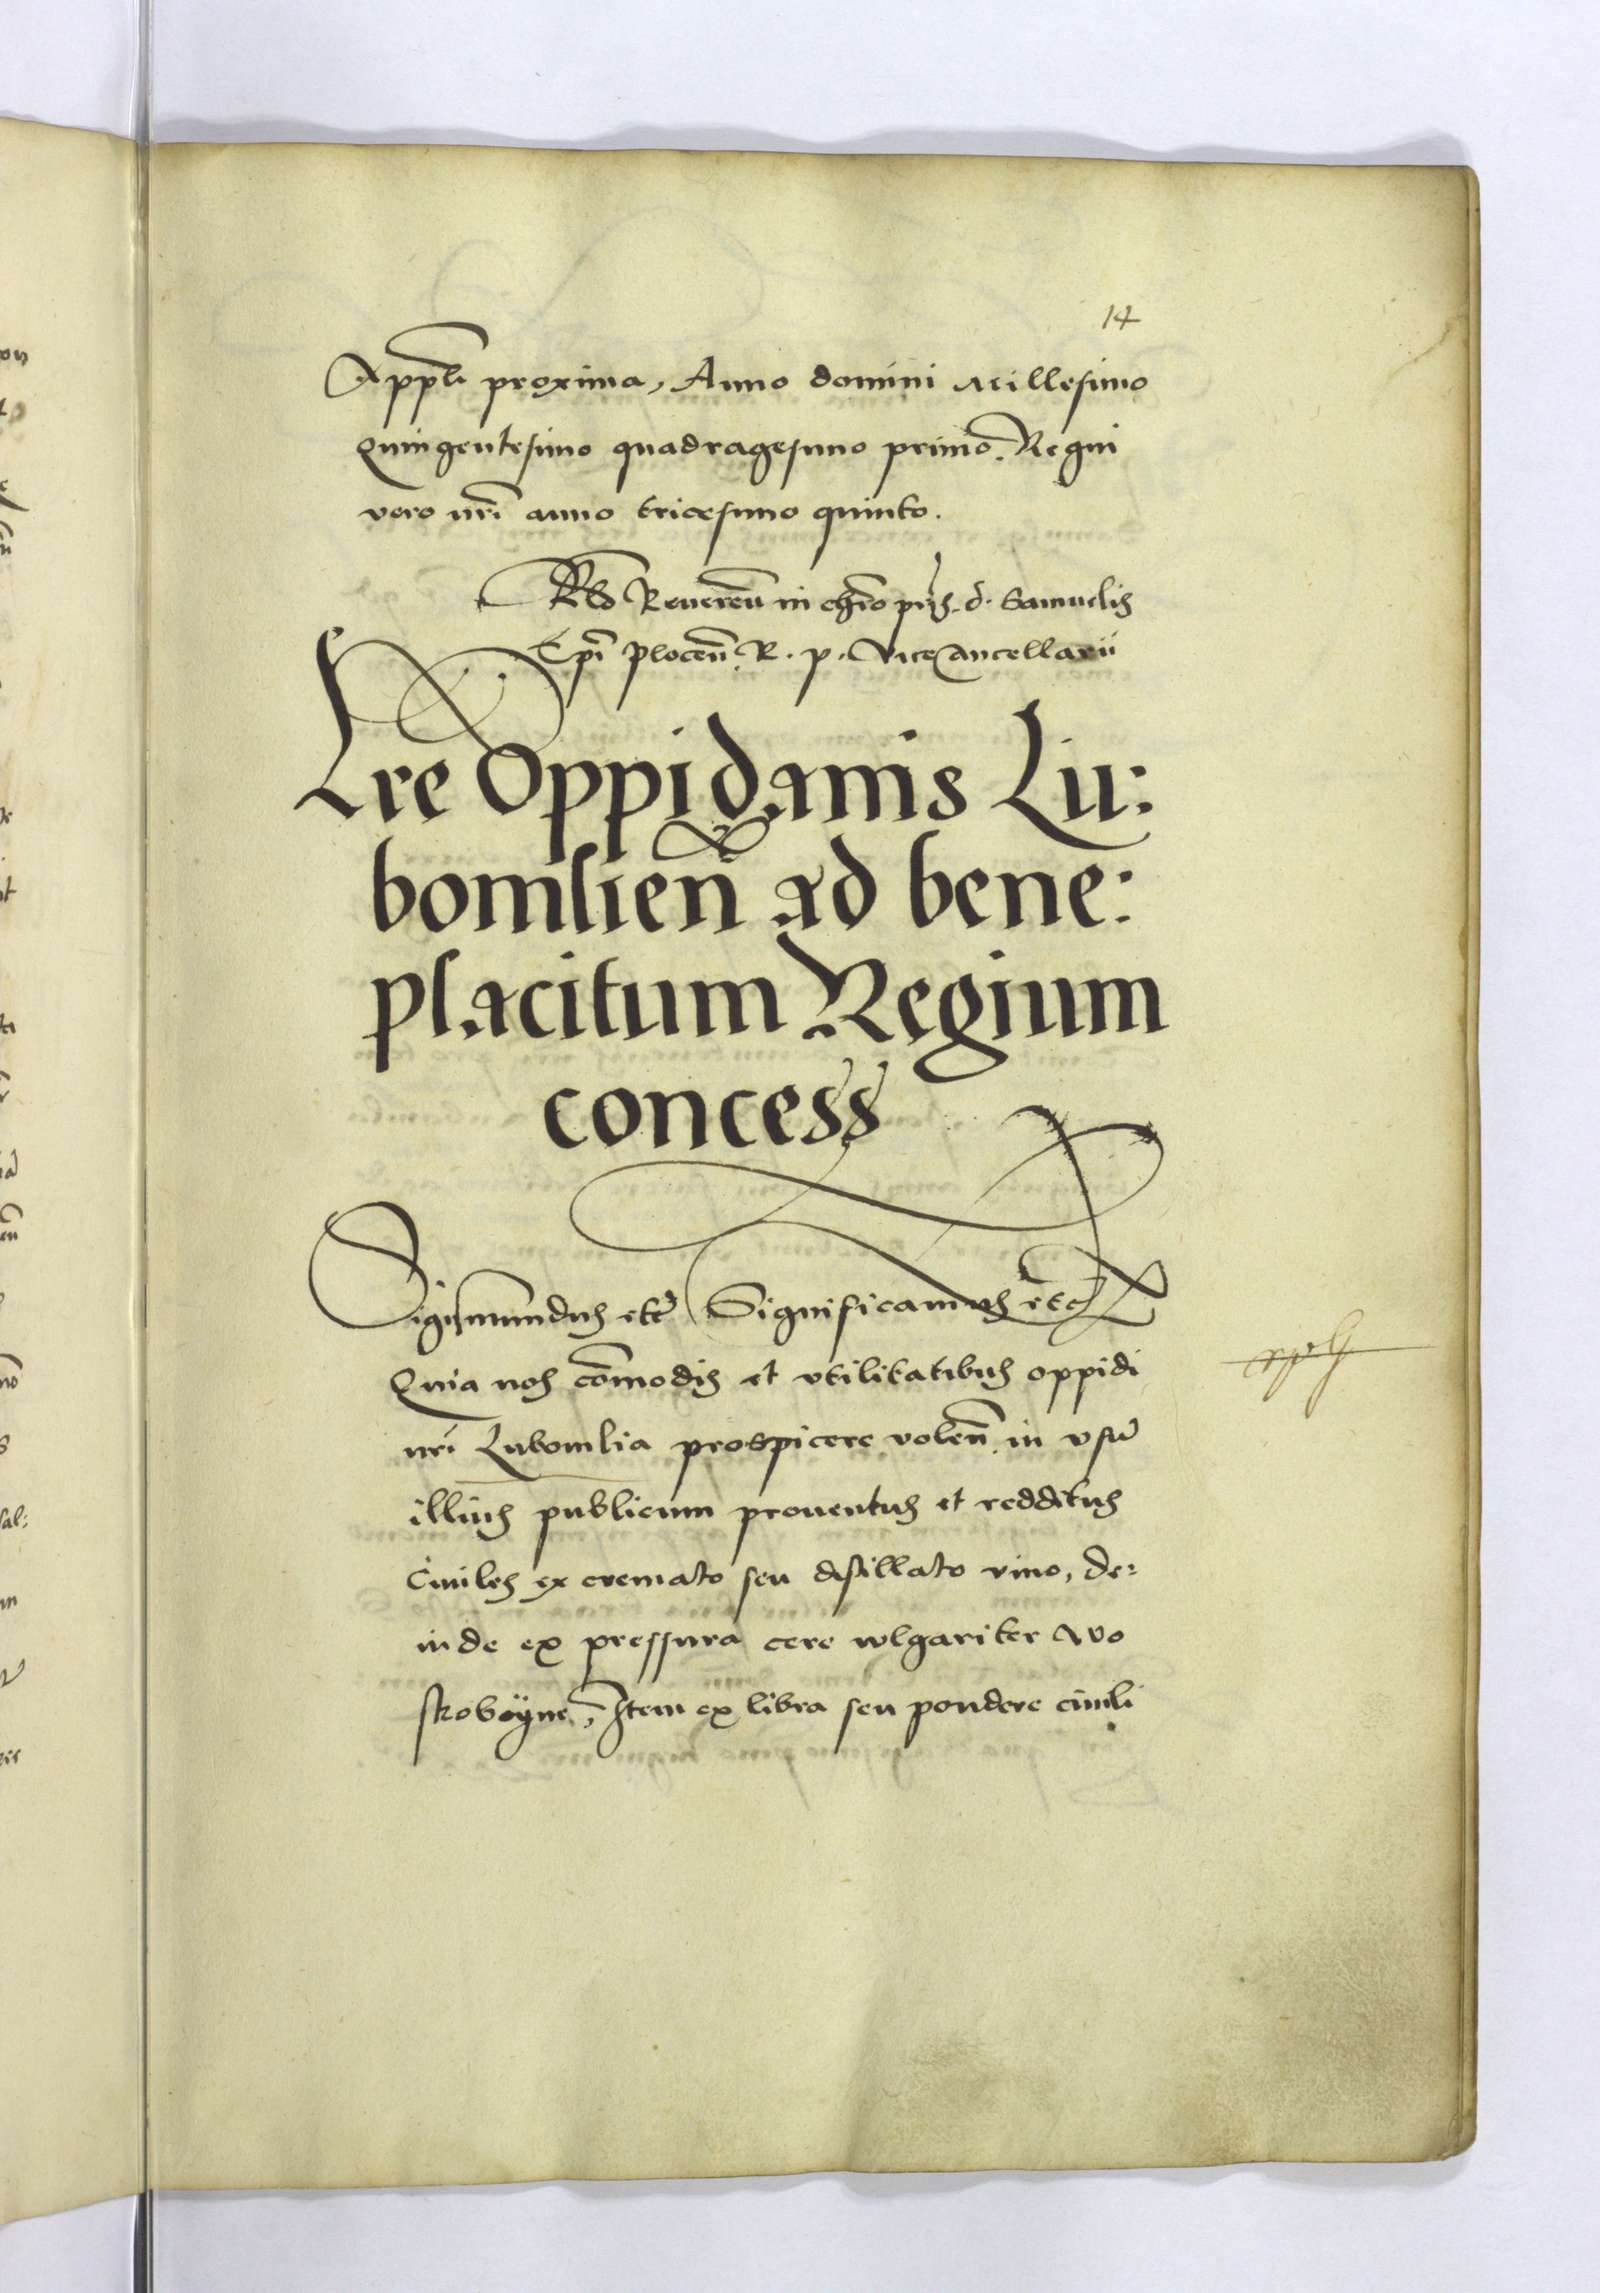 14
Appli proxima, Anno domini Millesimo
Quingentesimo quadragesimo primo. Regni
vero nri anno tricesimo quinto.
Reveren in chro pris. d. Samuelis
Epi Plocen. R. p. ViceCancellarii
Lre Oppidanis Lu:
bomlien ad bene:
placitum Regium
concess
Sigismundus etc Significamus etc
Quia nos commodis et utilitatibus oppidi
nri Lubomlia prospicere volen. in usu
illius publicum proventus et redditus
Civiles ex cremato seu distillato vino, de:
inde ex pressura cere wlgariter Wo
skoboÿne, Item ex libra seu pondere civili